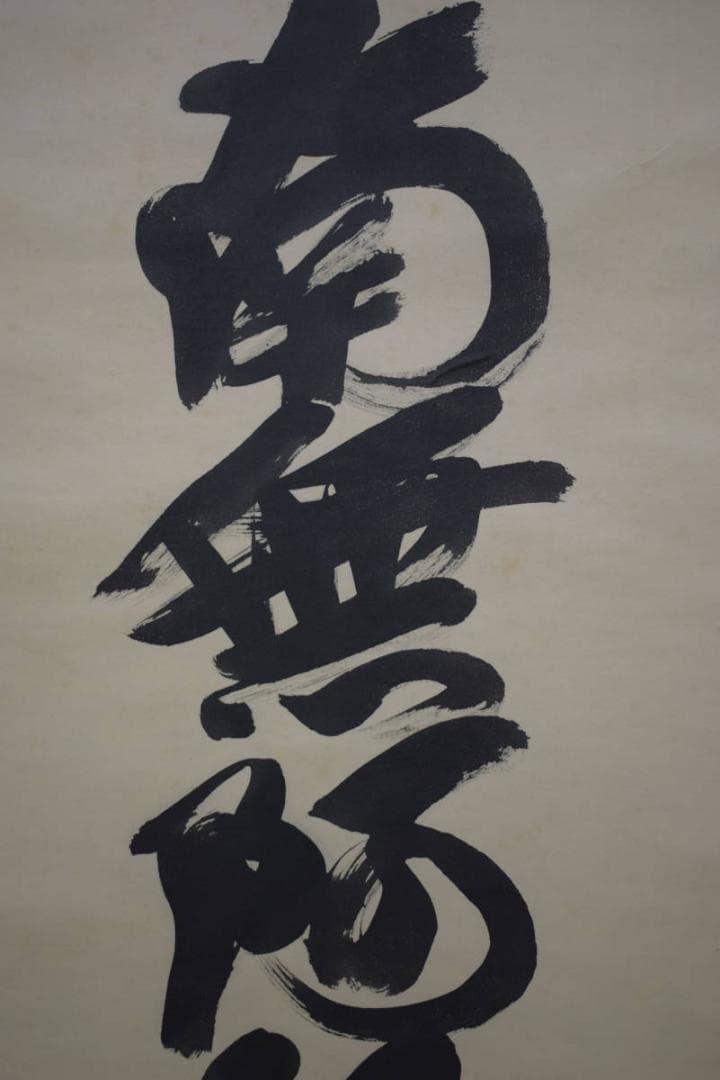 南無阿